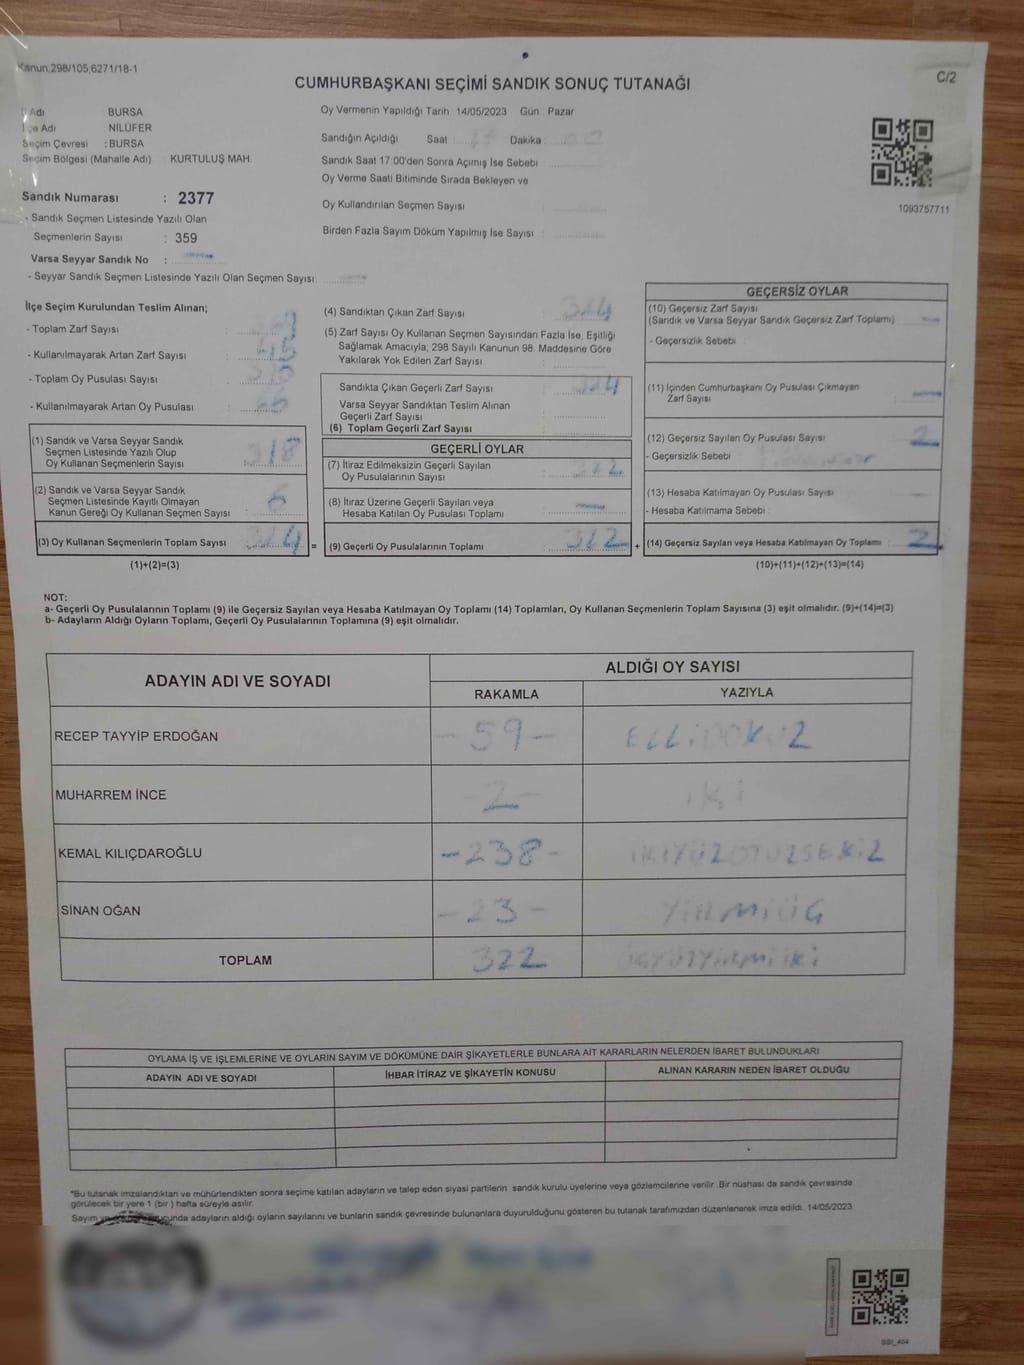 Kanun:298/105;6271/18-1
C/2
CUMHURBAŞKANI SEÇİMİ SANDIK SONUÇ TUTANAĞI
İl Adı BURSA
İlçe Adı NİLÜFER
Seçim Çevresi : BURSA
Seçim Bölgesi (Mahalle Adı) : KURTULUŞ MAH.
Sandık Numarası : 2377
- Sandık Seçmen Listesinde Yazılı Olan
Seçmenlerin Sayısı : 359
Varsa Seyyar Sandık No :
- Seyyar Sandık Seçmen Listesinde Yazılı Olan Seçmen Sayısı:
Oy Vermenin Yapıldığı Tarih 14/05/2023 Gün : Pazar
Sandığın Açıldığı Saat : 17 Dakika : 00
Sandık Saat 17:00'den Sonra Açımış İse Sebebi :
Oy Verme Saati Bitiminde Sırada Bekleyen ve
Oy Kullandırılan Seçmen Sayısı :
Birden Fazla Sayım Döküm Yapılmış İse Sayısı :
1093757711
İlçe Seçim Kurulundan Teslim Alınan;
- Toplam Zarf Sayısı :
- Kullanılmayarak Artan Zarf Sayısı : 45
- Toplam Oy Pusulası Sayısı :
- Kullanılmayarak Artan Oy Pusulası :
(1) Sandık ve Varsa Seyyar Sandık
Seçmen Listesinde Yazılı Olup
Oy Kullanan Seçmenlerin Sayısı : 318
(2) Sandık ve Varsa Seyyar Sandık
Seçmen Listesinde Kayıtlı Olmayan
Kanun Gereği Oy Kullanan Seçmen Sayısı : 6
(3) Oy Kullanan Seçmenlerin Toplam Sayısı : 324
(1)+(2)=(3)
(4) Sandıktan Çıkan Zarf Sayısı : 324
(5) Zarf Sayısı Oy Kullanan Seçmen Sayısından Fazla İse, Eşitliği
Sağlamak Amacıyla, 298 Sayılı Kanunun 98. Maddesine Göre
Yakılarak Yok Edilen Zarf Sayısı :
Sandıkta Çıkan Geçerli Zarf Sayısı : 324
Varsa Seyyar Sandıktan Teslim Alınan
Geçerli Zarf Sayısı :
(6) Toplam Geçerli Zarf Sayısı :
GEÇERLİ OYLAR
(7) İtiraz Edilmeksizin Geçerli Sayılan
Oy Pusulalarının Sayısı : 322
(8) İtiraz Üzerine Geçerli Sayılan veya
Hesaba Katılan Oy Pusulası Toplamı :
= (9) Geçerli Oy Pusulalarının Toplamı : 322 +
GEÇERSİZ OYLAR
(10) Geçersiz Zarf Sayısı
(Sandık ve Varsa Seyyar Sandık Geçersiz Zarf Toplamı) :
- Geçersizlik Sebebi :
(11) İçinden Cumhurbaşkanı Oy Pusulası Çıkmayan
Zarf Sayısı :
(12) Geçersiz Sayılan Oy Pusulası Sayısı : 2
- Geçersizlik Sebebi :
(13) Hesaba Katılmayan Oy Pusulası Sayısı :
- Hesaba Katılmama Sebebi :
(14) Geçersiz Sayılan veya Hesaba Katılmayan Oy Toplamı : 2
(10)+(11)+(12)+(13)=(14)
NOT:
a- Geçerli Oy Pusulalarının Toplamı (9) ile Geçersiz Sayılan veya Hesaba Katılmayan Oy Toplamı (14) Toplamları, Oy Kullanan Seçmenlerin Toplam Sayısına (3) eşit olmalıdır. (9)+(14)=(3)
b- Adayların Aldığı Oyların Toplamı, Geçerli Oy Pusulalarının Toplamına (9) eşit olmalıdır.
ADAYIN ADI VE SOYADI ALDIĞI OY SAYISI
RAKAMLA YAZIYLA
RECEP TAYYİP ERDOĞAN -59- ELLİDOKUZ
MUHARREM İNCE -2- iki
KEMAL KILIÇDAROĞLU -238- İKİYÜZOTUZSEKİZ
SİNAN OĞAN -23- YİRMİÜÇ
TOPLAM 322 ÜÇYÜZYİRMİİKİ
OYLAMA İŞ VE İŞLEMLERİNE VE OYLARIN SAYIM VE DÖKÜMÜNE DAİR ŞİKAYETLERLE BUNLARA AİT KARARLARIN NELERDEN İBARET BULUNDUKLARI
ADAYIN ADI VE SOYADI İHBAR İTİRAZ VE ŞİKAYETİN KONUSU ALINAN KARARIN NEDEN İBARET OLDUĞU
*Bu tutanak imzalandıktan ve mühürlendikten sonra seçime katılan adayların ve talep eden siyasi partilerin sandık kurulu üyelerine veya gözlemcilerine verilir. Bir nüshası da sandık çevresinde
görülecek bir yere 1 (bir ) hafta süreyle asılır.
Sayım adayların aldığı oyların sayılarını ve bunların sandık çevresinde bulunanlara duyurulduğunu gösteren bu tutanak tarafımızdan düzenlenerek imza edildi. 14/05/2023